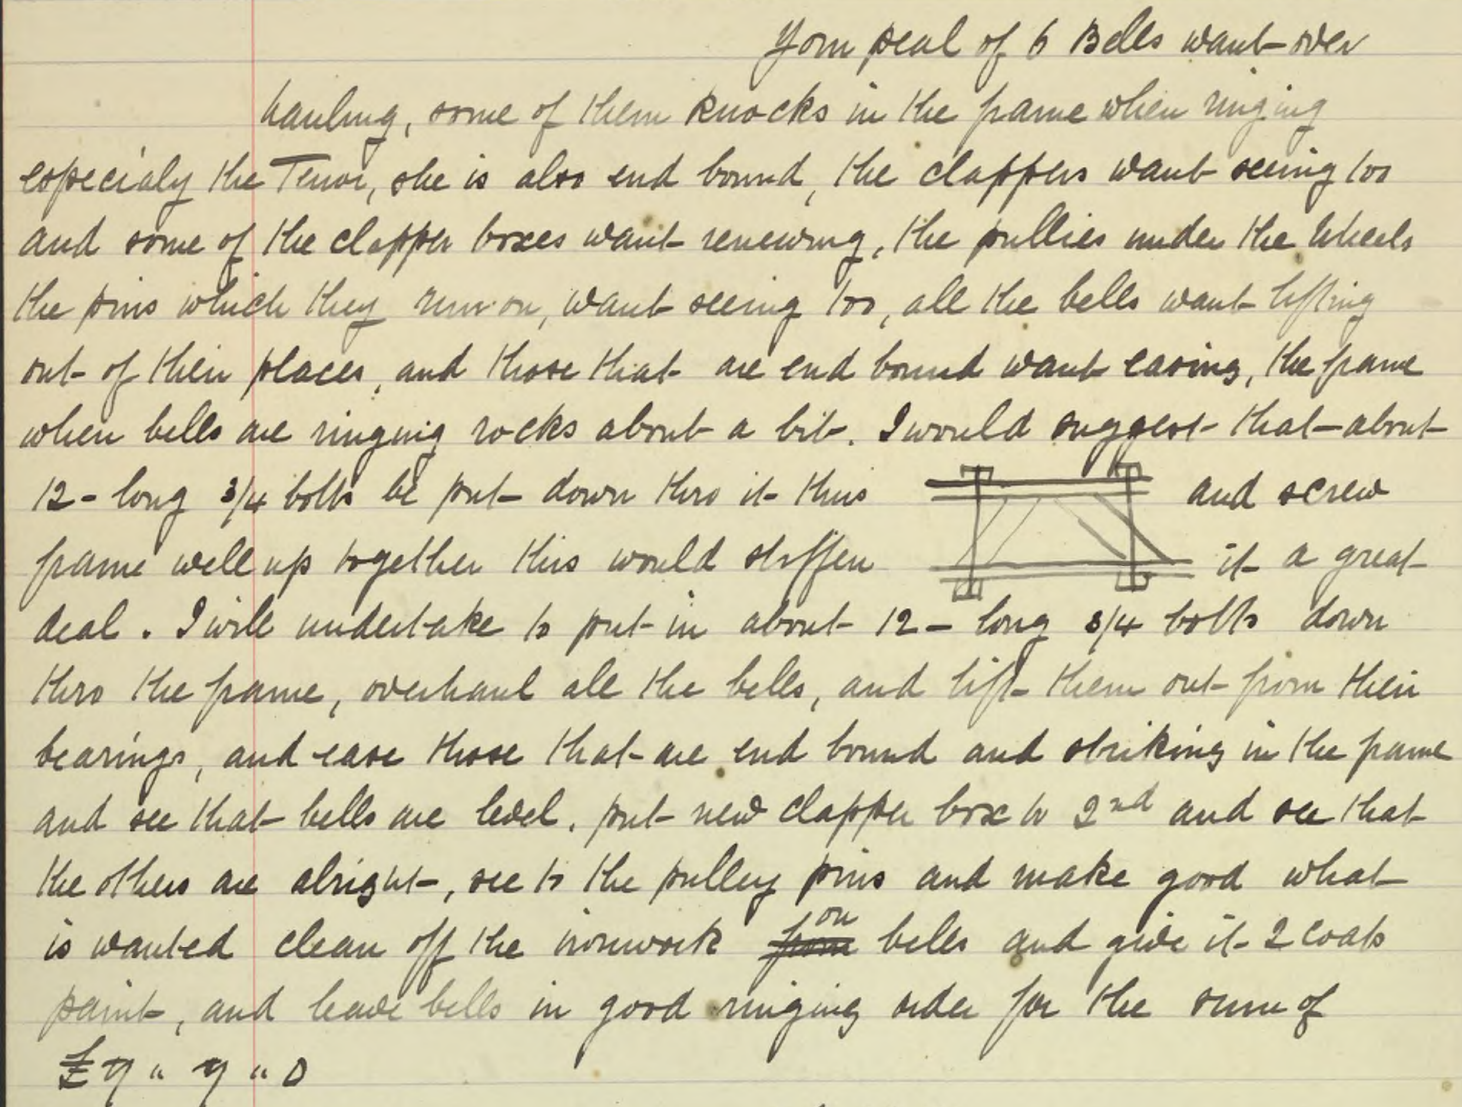 Your peal of 6 Bells want over
hauling, some of them knocks in the frame when ringing
especialy the Tenor, she is also end bound, the clappers want seeing too
and some of the clapper boxes want renewing, the pullies under the wheels
the pins which they run on, want seeing too, all the bells want lifting
out of their places, and those that are end bound want easing, the frame
when bells are ringing rocks about a bit. I would suggest that about
12 - long 3/4 bolts be put down thro it thus and screw
frame well up together this would stiffen it a great
deal. I will undertake to put in about 12 - long 3/4 bolts down
thro the frame, overhaul all the bells, and lift them out from their
bearings, and ease those that are end bound and striking in the frame
and see that bells are level. put new clapper box to 2nd and see that
the others are alright, see to the pulley pins and make good what
is wanted clean off the ironwork from on bells and give it 2 coats
paint, and leave bells in good ringing order for the sum of
£7 " 7 " 0